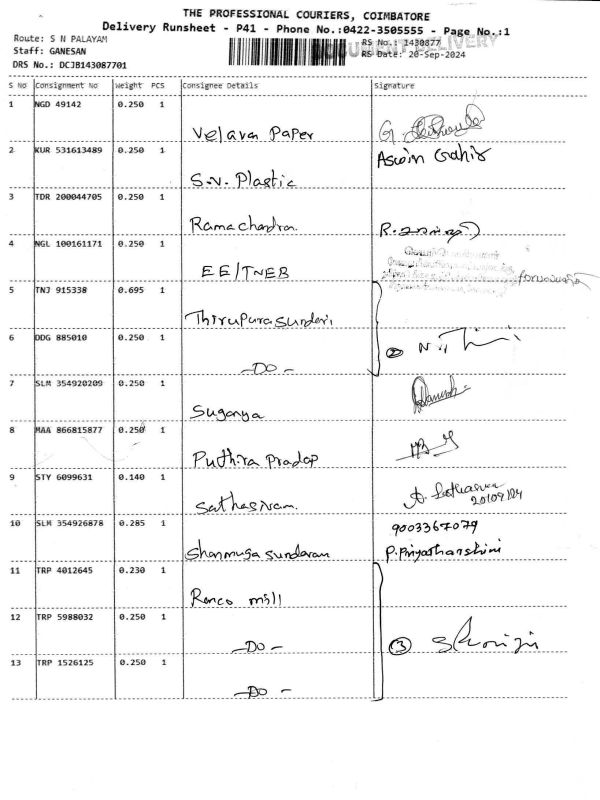 THE PROFESSIONAL COURIERS, COIMBATORE
Delivery Runsheet - P41 - Phone No.:0422-3505555 - Page No.:1
Route: S N PALAYAM
RS No.: 1430877
DOCUMENT DELIVERY
Staff: GANESAN
RS Date: 20-Sep-2024
DRS No.: DCJB143087701
S No Consignment No Weight PCS Consignee Details Signature
1 NGD 49142 0.250 1
Velavan Paper G.
2 KUR 531613489 0.250 1 Aswin
S.V. Plastic
3 TDR 200044705 0.250 1
Ramachandran. R.
4 NGL 100161171 0.250 1
EE/TNEB
5 TNJ 915338 0.695 1
Thirupurasundari
6 DDG 885010 0.250 1 2
-DO-
7 SLM 354920209 0.250 1
Suganya
8 MAA 866815877 0.250 1
Puthira Pradap
9 STY 6099631 0.140 1
Sathasivam. 20/09/24
10 SLM 354926878 0.285 1 9003367079
Shanmuga sundaram P. Priyatharshini
11 TRP 4012645 0.230 1
Ronco mill
12 TRP 5988032 0.250 1
-DO- 3
13 TRP 1526125 0.250 1
-DO-